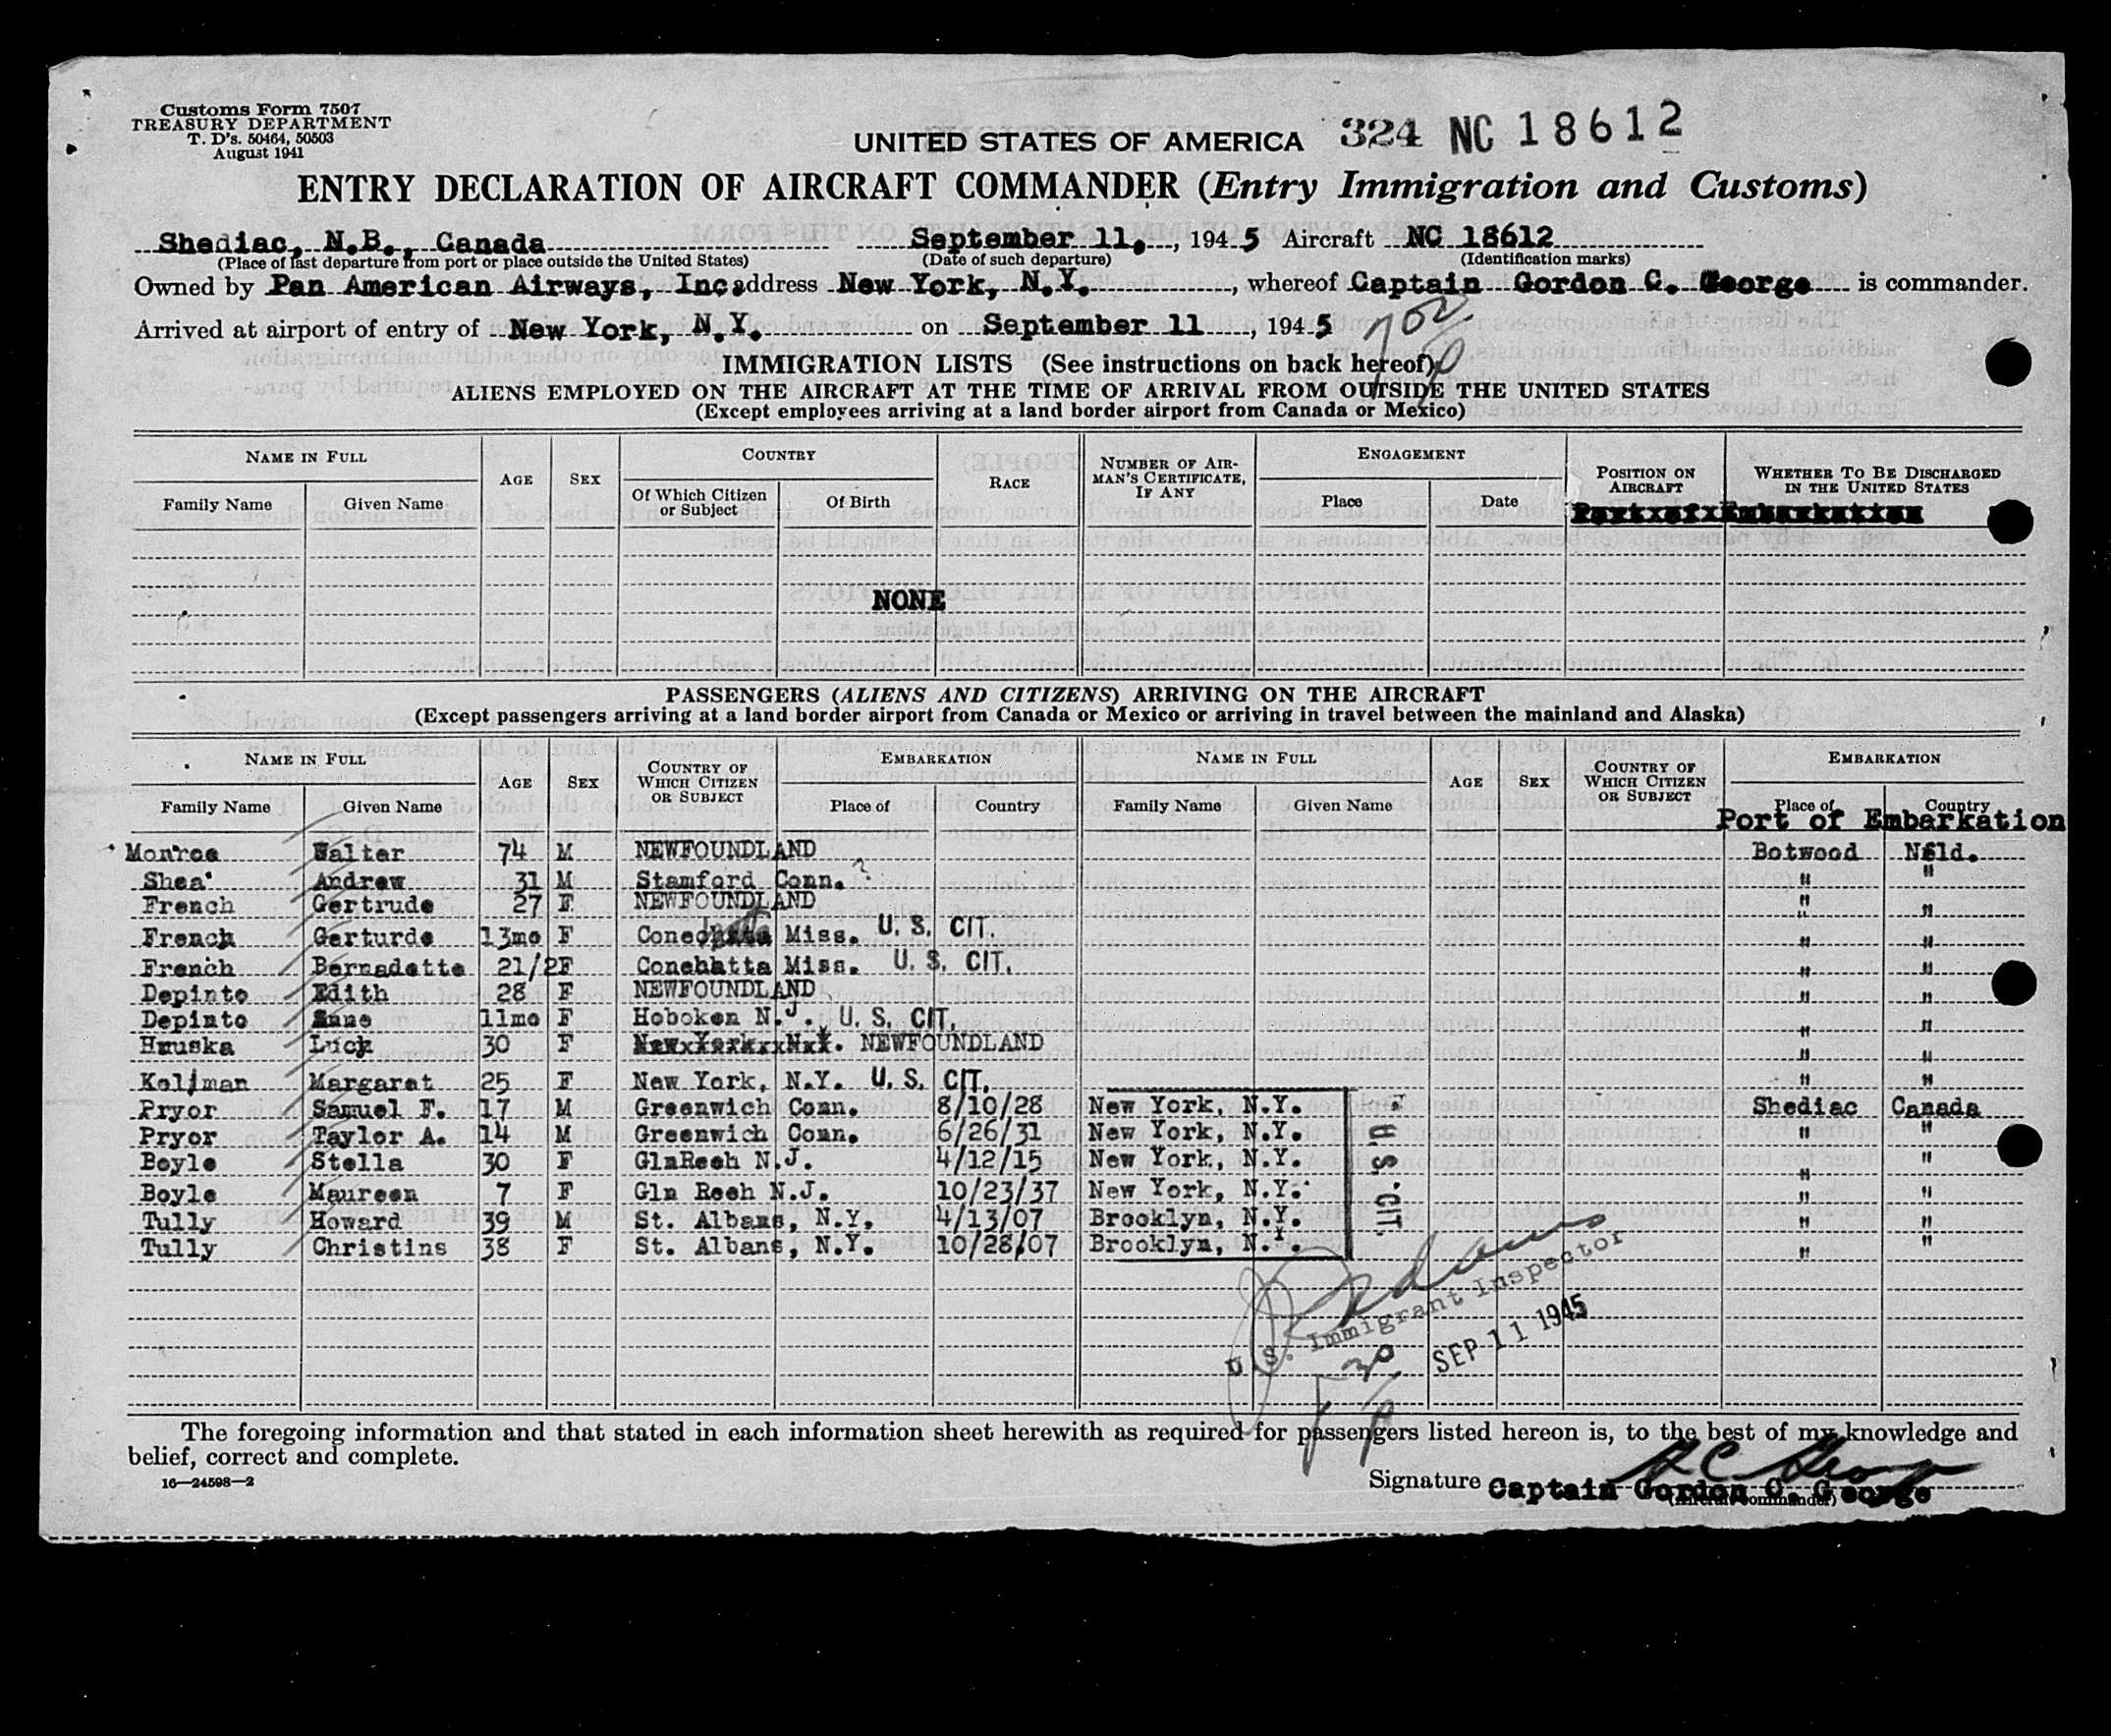 Customs Form 7507
TREASURY DEPARTMENT
T. D's. 50464, 50503
August 1941
UNITED STATES OF AMERICA 324 NC 18612
ENTRY DECLARATION OF AIRCRAFT COMMANDER (Entry Immigration and Customs)
Shediac, N.B., Canada September 11, , 1945 Aircraft NC 18612
(Place of last departure from port or place outside the United States) (Date of such departure) (Identification marks)
Owned by Pan American Airways, Inc address New York, N.Y. , whereof Captain Gordon C. George is commander.
Arrived at airport of entry of New York, N.Y. on September 11 , 1945
IMMIGRATION LISTS (See instructions on back hereof)
ALIENS EMPLOYED ON THE AIRCRAFT AT THE TIME OF ARRIVAL FROM OUTSIDE THE UNITED STATES
(Except employees arriving at a land border airport from Canada or Mexico)
NAME IN FULL AGE SEX COUNTRY RACE NUMBER OF AIRMAN'S CERTIFICATE, IF ANY ENGAGEMENT POSITION ON AIRCRAFT WHETHER TO BE DISCHARGED IN THE UNITED STATES
Family Name Given Name Of Which Citizen or Subject Of Birth Place Date
NONE
PASSENGERS (ALIENS AND CITIZENS) ARRIVING ON THE AIRCRAFT
(Except passengers arriving at a land border airport from Canada or Mexico or arriving in travel between the mainland and Alaska)
NAME IN FULL AGE SEX COUNTRY OF WHICH CITIZEN OR SUBJECT EMBARKATION NAME IN FULL AGE SEX COUNTRY OF WHICH CITIZEN OR SUBJECT EMBARKATION
Family Name Given Name Place of Country Family Name Given Name Place of Country
Port of Embarkation
Monroe Walter 74 M NEWFOUNDLAND Botwood Nfld.
Shea Andrew 31 M Stamford Conn. ? " "
French Gertrude 27 F NEWFOUNDLAND " "
French Gerturde 13mo F Miss. U. S. CIT. " "
French Bernadette 21/2 F Conehatta Miss. U. S. CIT. " "
Depinto Edith 28 F NEWFOUNDLAND " "
Depinto Anne 11mo F Hoboken N.J. U. S. CIT. " "
Hruska Lucy 30 F NEWFOUNDLAND " "
Koljman Margaret 25 F New York, N.Y. U. S. CIT. " "
Pryor Samuel F. 17 M Greenwich Conn. 8/10/28 New York, N.Y. Shediac Canada
Pryor Taylor A. 14 M Greenwich Conn. 6/26/31 New York, N.Y. " "
Boyle Stella 30 F GlnReeh N.J. 4/12/15 New York, N.Y. " "
Boyle Maureen 7 F Gln Reeh N.J. 10/23/37 New York, N.Y. " "
Tully Howard 39 M St. Albans, N.Y. 4/13/07 Brooklyn, N.Y. " "
Tully Christins 38 F St. Albans, N.Y. 10/28/07 Brooklyn, N.Y. " "
U. S. CIT.
U. S. Immigrant Inspector
SEP 11 1945
The foregoing information and that stated in each information sheet herewith as required for passengers listed hereon is, to the best of my knowledge and
belief, correct and complete.
16—24598—2
Signature G C George
Captain Gordon C. George
(Aircraft commander)